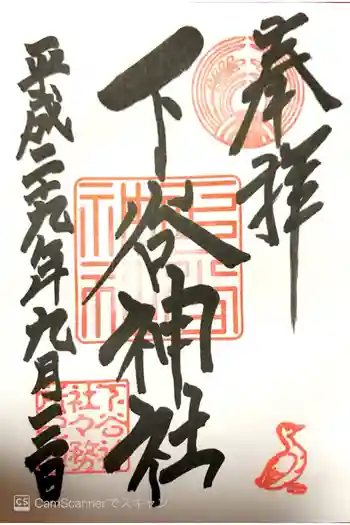 奉拝
下谷神社
平成二十九年九月二日
CS CamScannerでスキャン